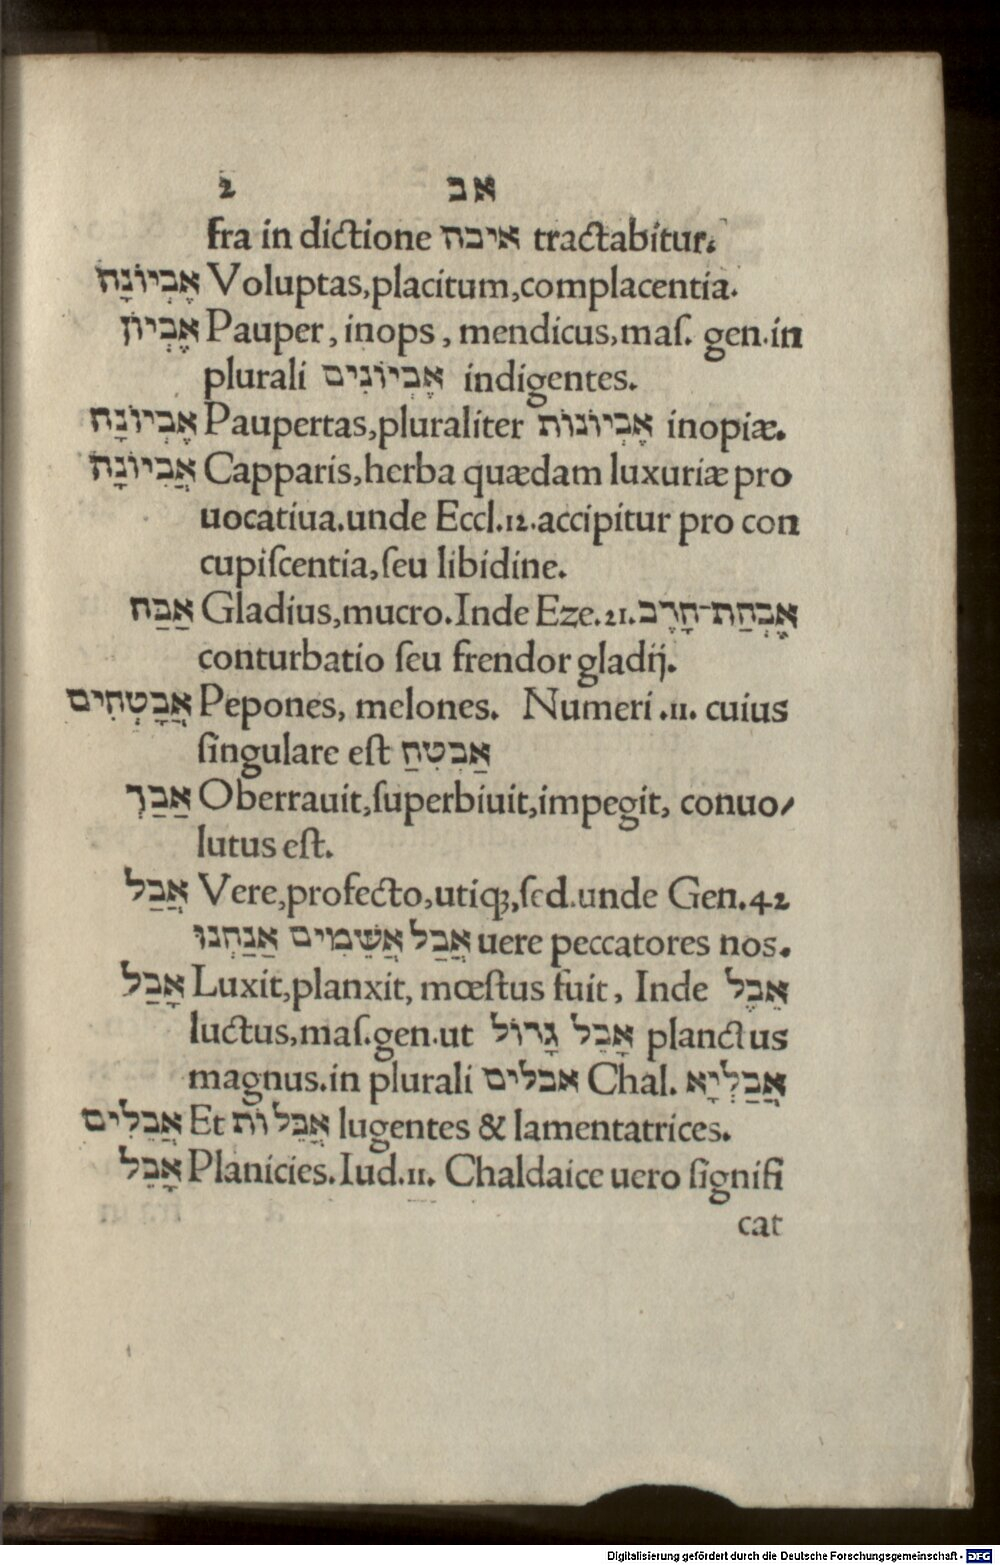 2 אב
fra in dictione איבה tractabitur.
אֶבְיוֹנָה Voluptas,placitum,complacentia.
אֶבְיוֹן Pauper, inops, mendicus,maſ. gen.in
plurali אֶבְיוֹנִים indigentes.
אֶבְיוֹנָה Paupertas,pluraliter אֶבְיוֹנוֹת inopiæ.
אֲבִיוֹנָה Capparis,herba quædam luxuriæ pro
uocatiua.unde Eccl.12.accipitur pro con
cupiſcentia,ſeu libidine.
אַבַּח Gladius,mucro.Inde Eze.21.אֶבְחַת־חָרֶב
conturbatio ſeu frendor gladij.
אֲבָטְחִים Pepones, melones. Numeri .11. cuius
ſingulare eſt אַבִטִחַ
אַבַךְ Oberrauit,ſuperbiuit,impegit, conuo/
lutus eſt.
אֲבַל Vere,profecto,utiqꝫ,ſed.unde Gen.42
אֲבַל אֲשֵׁמִים אַנַחְנוּ uere peccatores nos.
אָבַל Luxit,planxit, mœſtus fuit, Inde אֵבֶל
luctus,maſ.gen.ut אָבֵל גָּרוֹל planctus
magnus.in plurali אבלים Chal. אֲבַלְיָא
אֲבֵלִים Et אֲבֵלוֹת lugentes & lamentatrices.
אָבֵל Planicies.Iud.11. Chaldaice uero ſignifi
cat
Digitalisierung gefördert durch die Deutsche Forschungsgemeinschaft - DFG